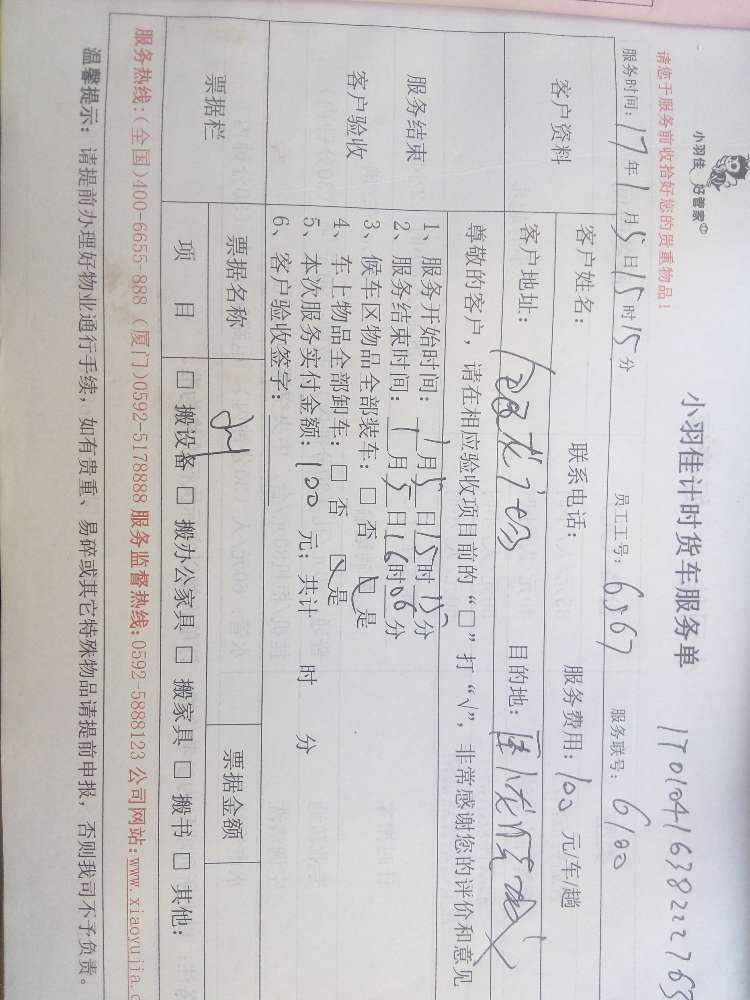 小羽佳 好管家
小羽佳计时货车服务单
170104163822276
请您于服务前收拾好您的贵重物品!
服务时间: 17年1月5日15时15分 员工工号: 6567 服务联号: 6100
客户资料
客户姓名: 联系电话: 服务费用: 100 元/车/趟
客户地址: 目的地:
服务结束
客户验收
尊敬的客户，请在相应验收项目前的“□”打“√”，非常感谢您的评价和意见
1、服务开始时间: 1月5日15时15分
2、服务结束时间: 1月5日16时06分
3、候车区物品全部装车: □ 否 □ 是
4、车上物品全部卸车: □ 否 □ 是
5、本次服务实付金额: 100 元; 共计 时 分
6、客户验收签字:
票据栏
票据名称 票据金额
项 目 □ 搬设备 □ 搬办公家具 □ 搬家具 □ 搬书 □ 其他:
服务热线:(全国)400-6655-888 (厦门)0592-5178888 服务监督热线:0592-5888123 公司网站:www.xiaoyujia.c
温馨提示: 请提前办理好物业通行手续，如有贵重、易碎或其它特殊物品请提前申报，否则我司不予负责。